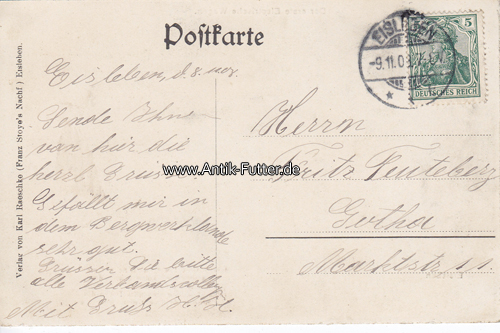 Postkarte
EISLEBEN
-9.11.03
5
DEUTSCHES REICH
Verlag von Karl Raeschke (Franz Stoye's Nachf) Eisleben.
Eisleben, d. 8. nov.
Sende Ihnen
von hier die
herzl. Grüsse
Gefällt mir in
dem Bergwerkslande
sehr gut.
Grüssen Sie bitte
alle Verbandskolleg
Mit Gruss H. H.
Herrn
Fritz Teuteberg
Gotha
Marktstr. 11
www.Antik-Futter.de